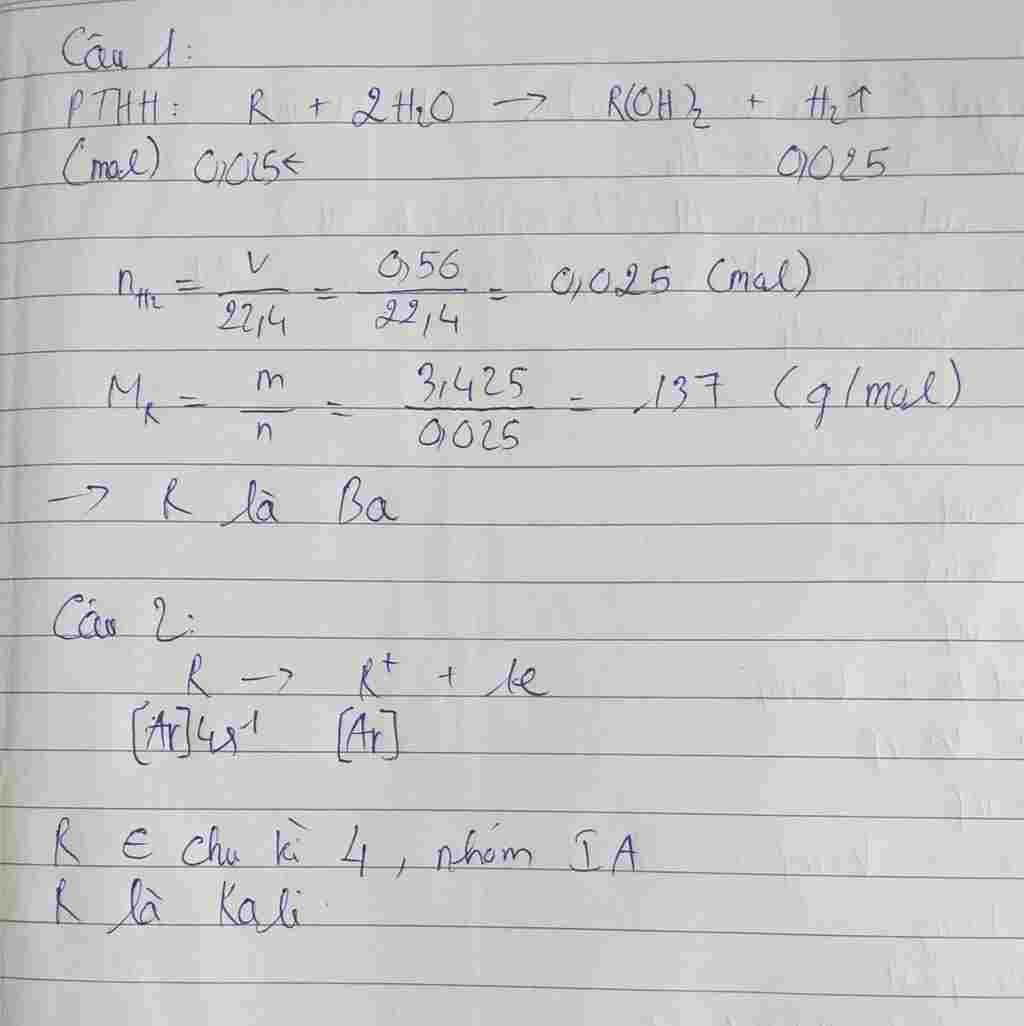 Câu 1:
PTHH: R + 2H₂O → R(OH)₂ + H₂↑
(mol) 0,025← 0,025
n_H₂ = V/22,4 = 0,56/22,4 = 0,025 (mol)
M_R = m/n = 3,425/0,025 = 137 (g/mol)
→ R là Ba
Câu 2:
R → R⁺ + 1e
[Ar]4s¹ [Ar]
R ∈ chu kì 4, nhóm IA
R là Kali